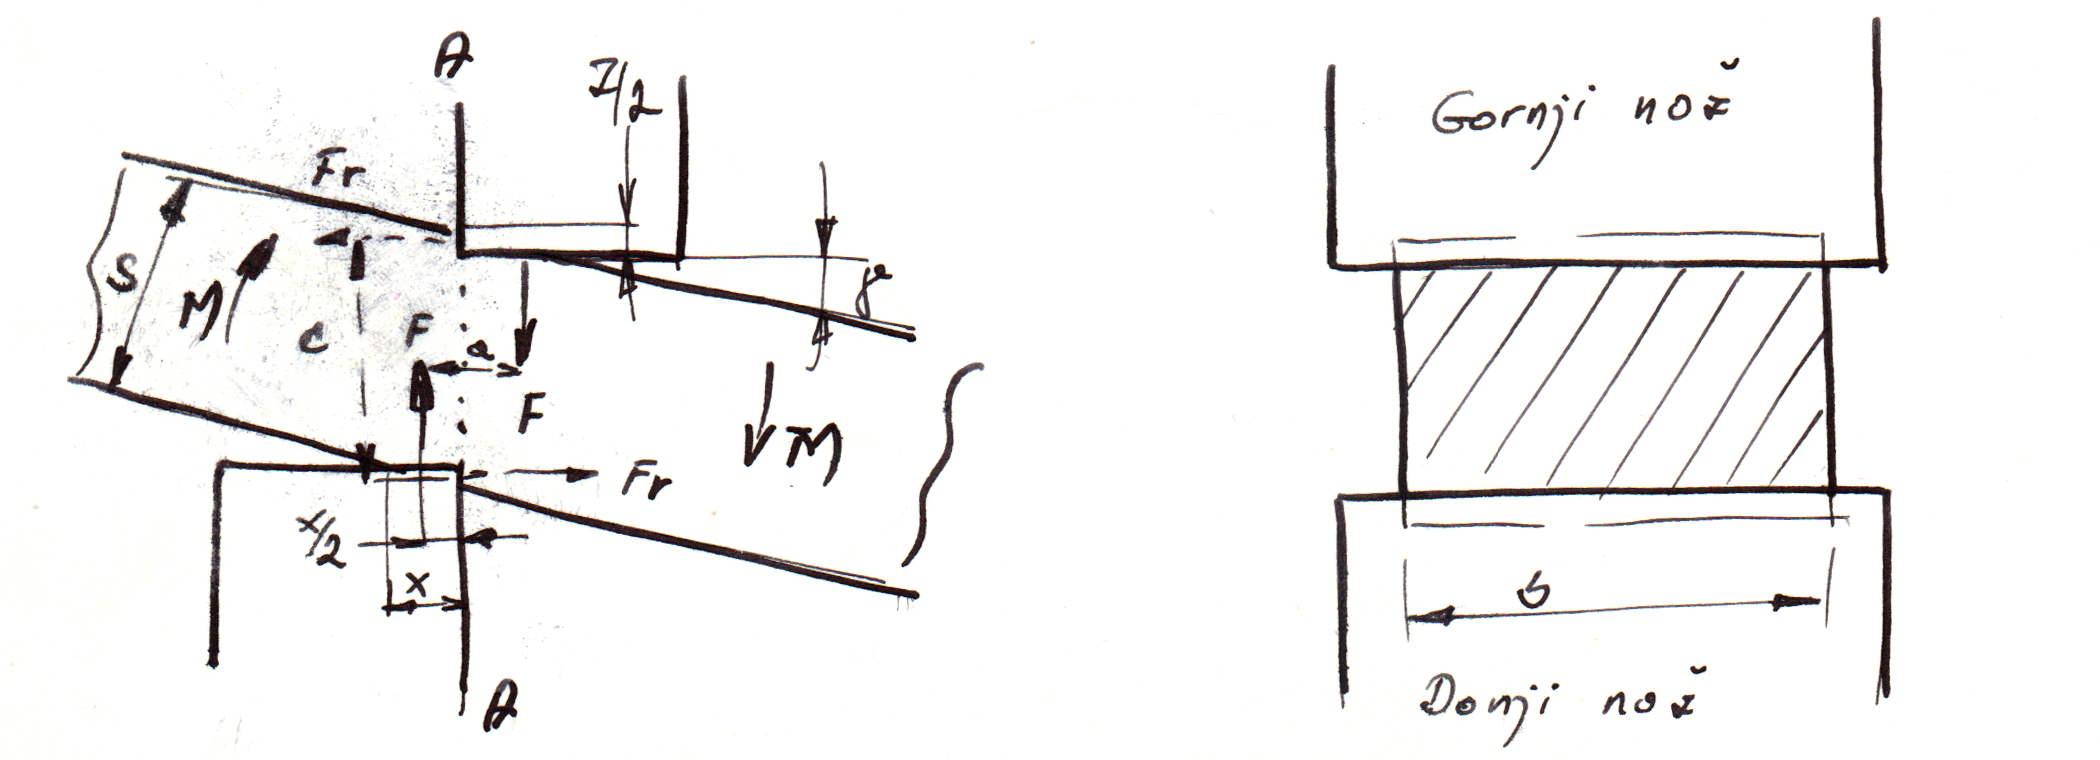 A
Z/2
Fr
S
M
c
F
a
γ
F
M
Fr
x/2
x
A
Gornji nož
b
Donji nož